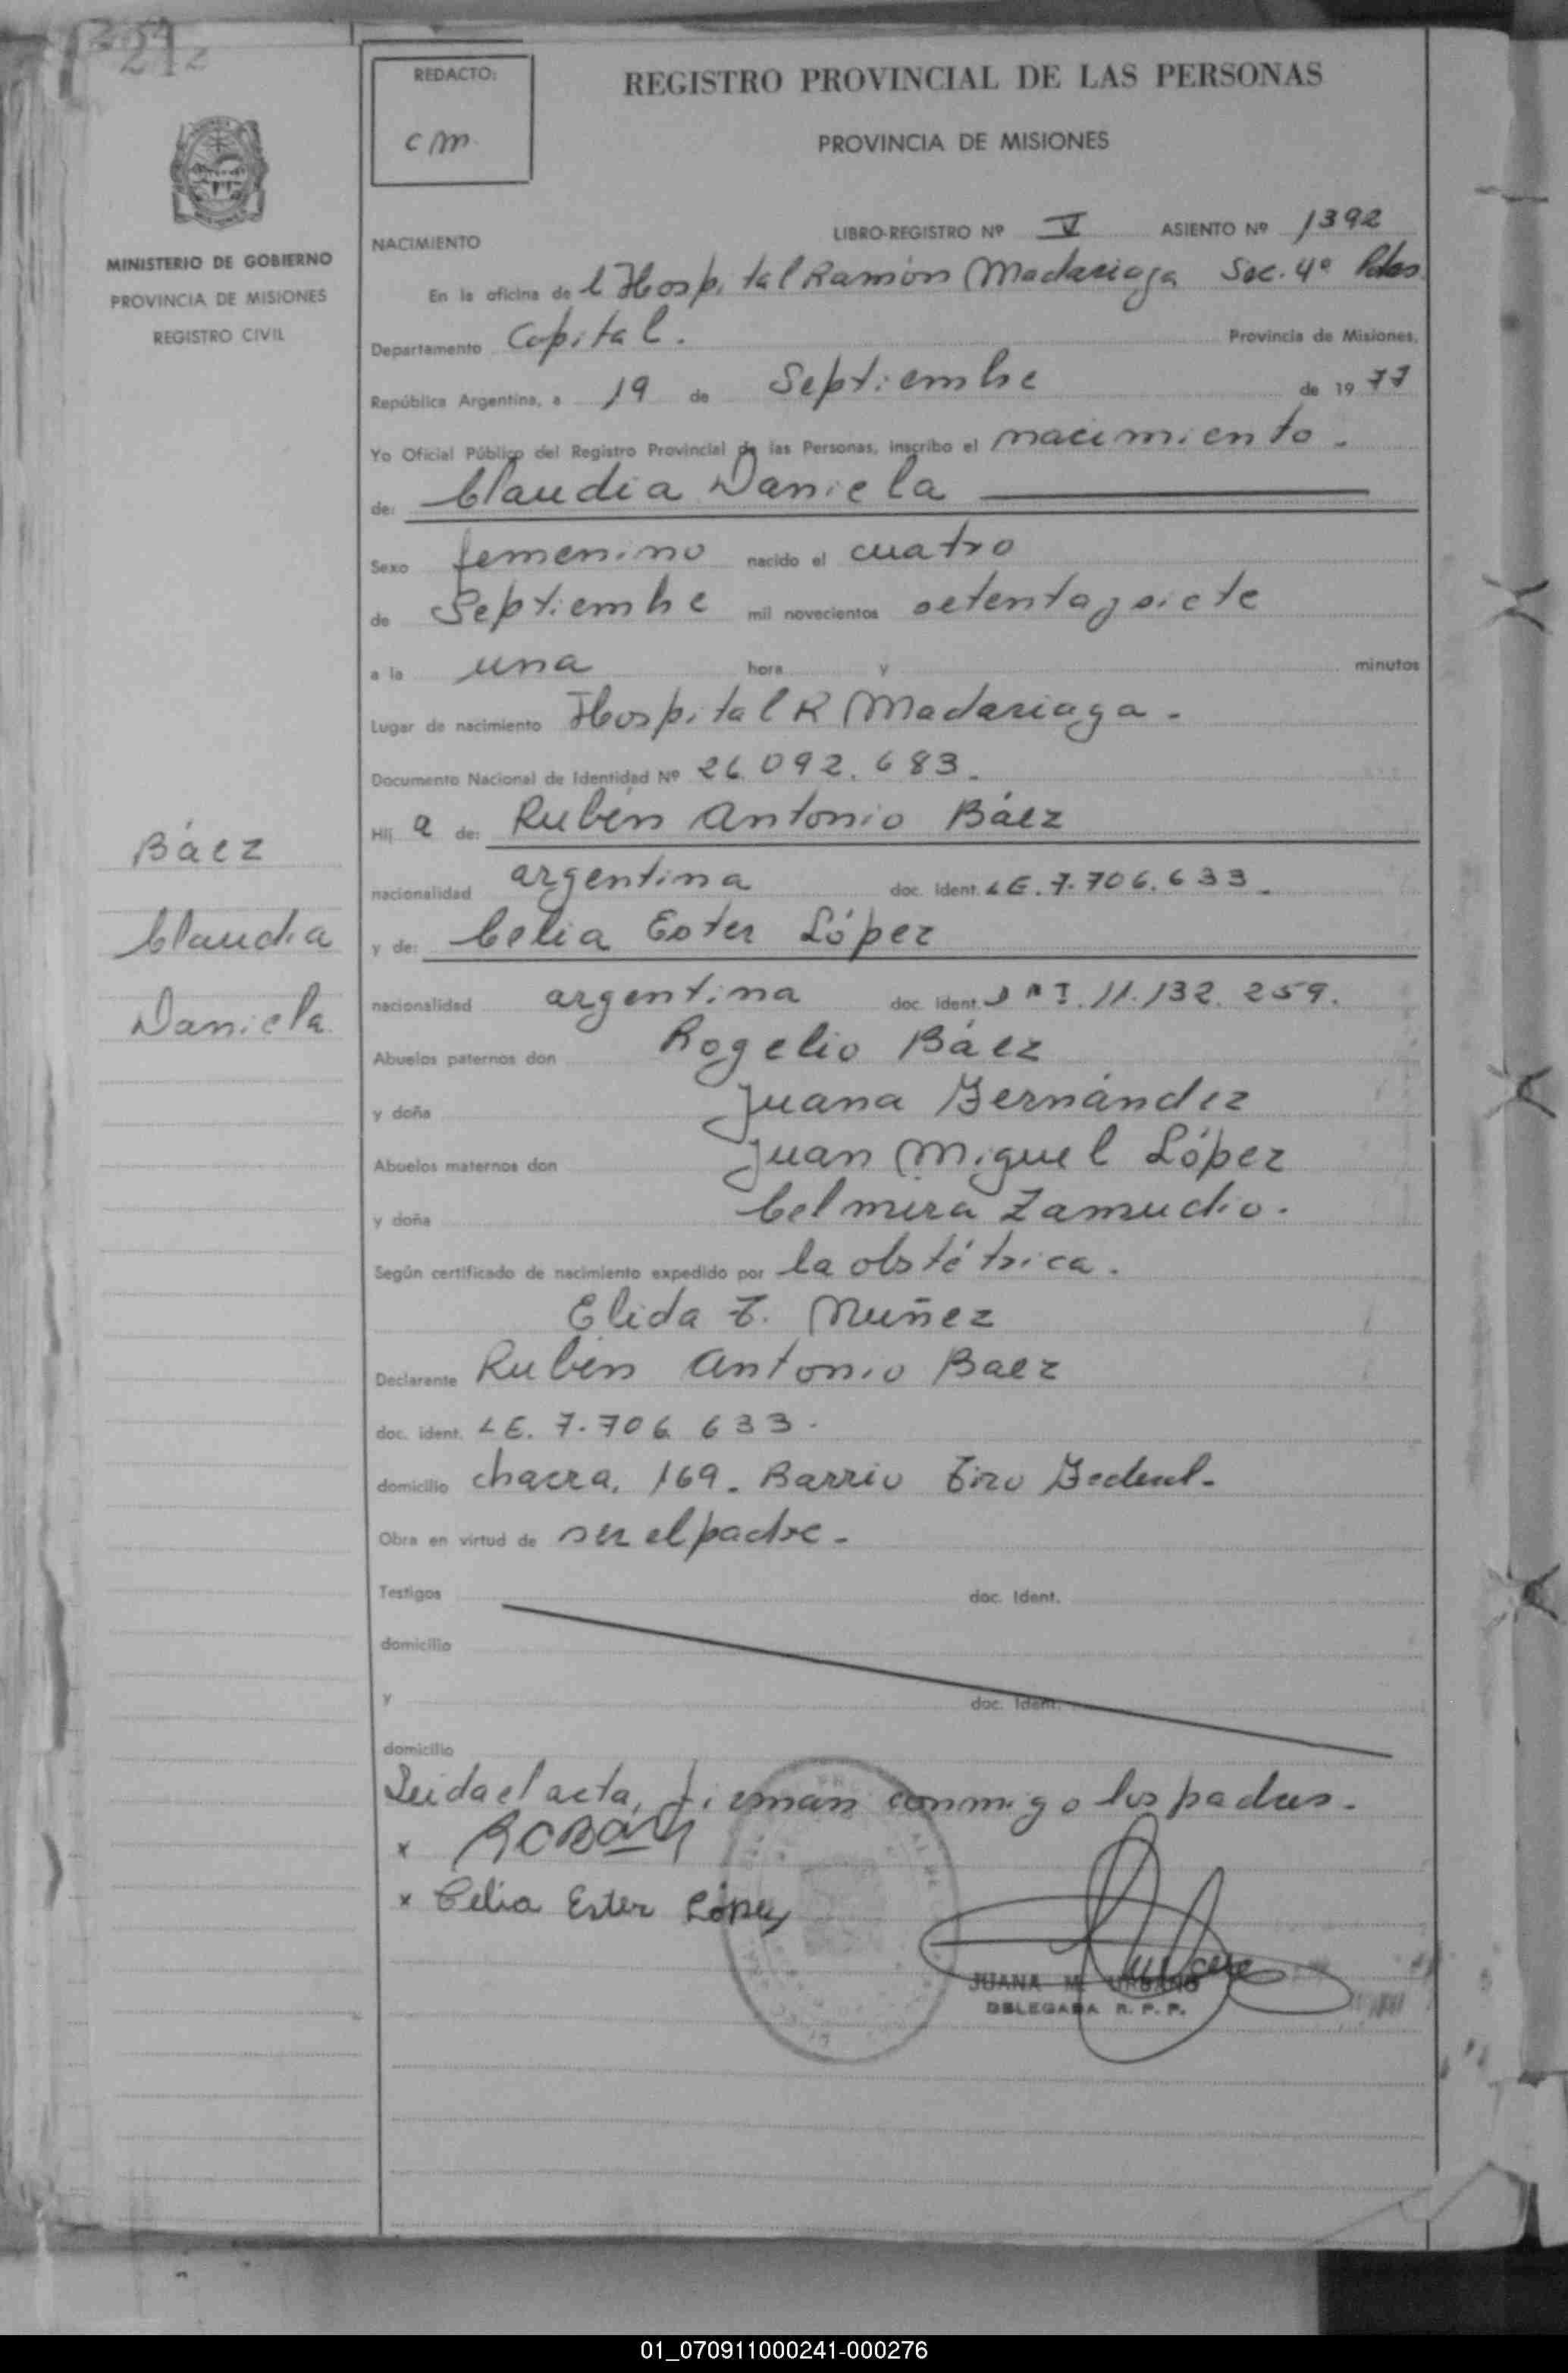 292
REDACTO:
cm.
REGISTRO PROVINCIAL DE LAS PERSONAS
PROVINCIA DE MISIONES
MINISTERIO DE GOBIERNO
PROVINCIA DE MISIONES
REGISTRO CIVIL
NACIMIENTO LIBRO-REGISTRO Nº V ASIENTO Nº 1392
En la oficina de l Hospital Ramón Madariaga Sec. 4ª Pdas.
Departamento Capital. Provincia de Misiones,
República Argentina, a 19 de Septiembre de 19 77
Yo Oficial Público del Registro Provincial de las Personas, inscribo el nacimiento.
de: Claudia Daniela
Sexo femenino nacido el cuatro
de Septiembre mil novecientos setenta y siete
a la una hora y minutos
Lugar de nacimiento Hospital R Madariaga.
Documento Nacional de Identidad Nº 26.092.683.
Hij a de: Rubén Antonio Báez
nacionalidad argentina doc. Ident. LE. 7.706.633.
y de: Celia Ester López
nacionalidad argentina doc. Ident. DNI. 11.132.259.
Abuelos paternos don Rogelio Báez
y doña Juana Fernández
Abuelos maternos don Juan Miguel López
y doña Celmira Zamudio.
Según certificado de nacimiento expedido por la obstétrica.
Elida T. Nuñez
Declarante Rubén Antonio Baez
doc. ident. LE. 7.706.633.
domicilio chacra, 169. Barrio Tiro Federal.
Obra en virtud de ser el padre.
Testigos doc. Ident.
domicilio
y doc. Ident.
domicilio
Leida el acta, firman conmigo los padres.
x
x Celia Ester López
JUANA M. URBANO
DELEGADA R. P. P.
Báez
Claudia
Daniela
01_070911000241-000276